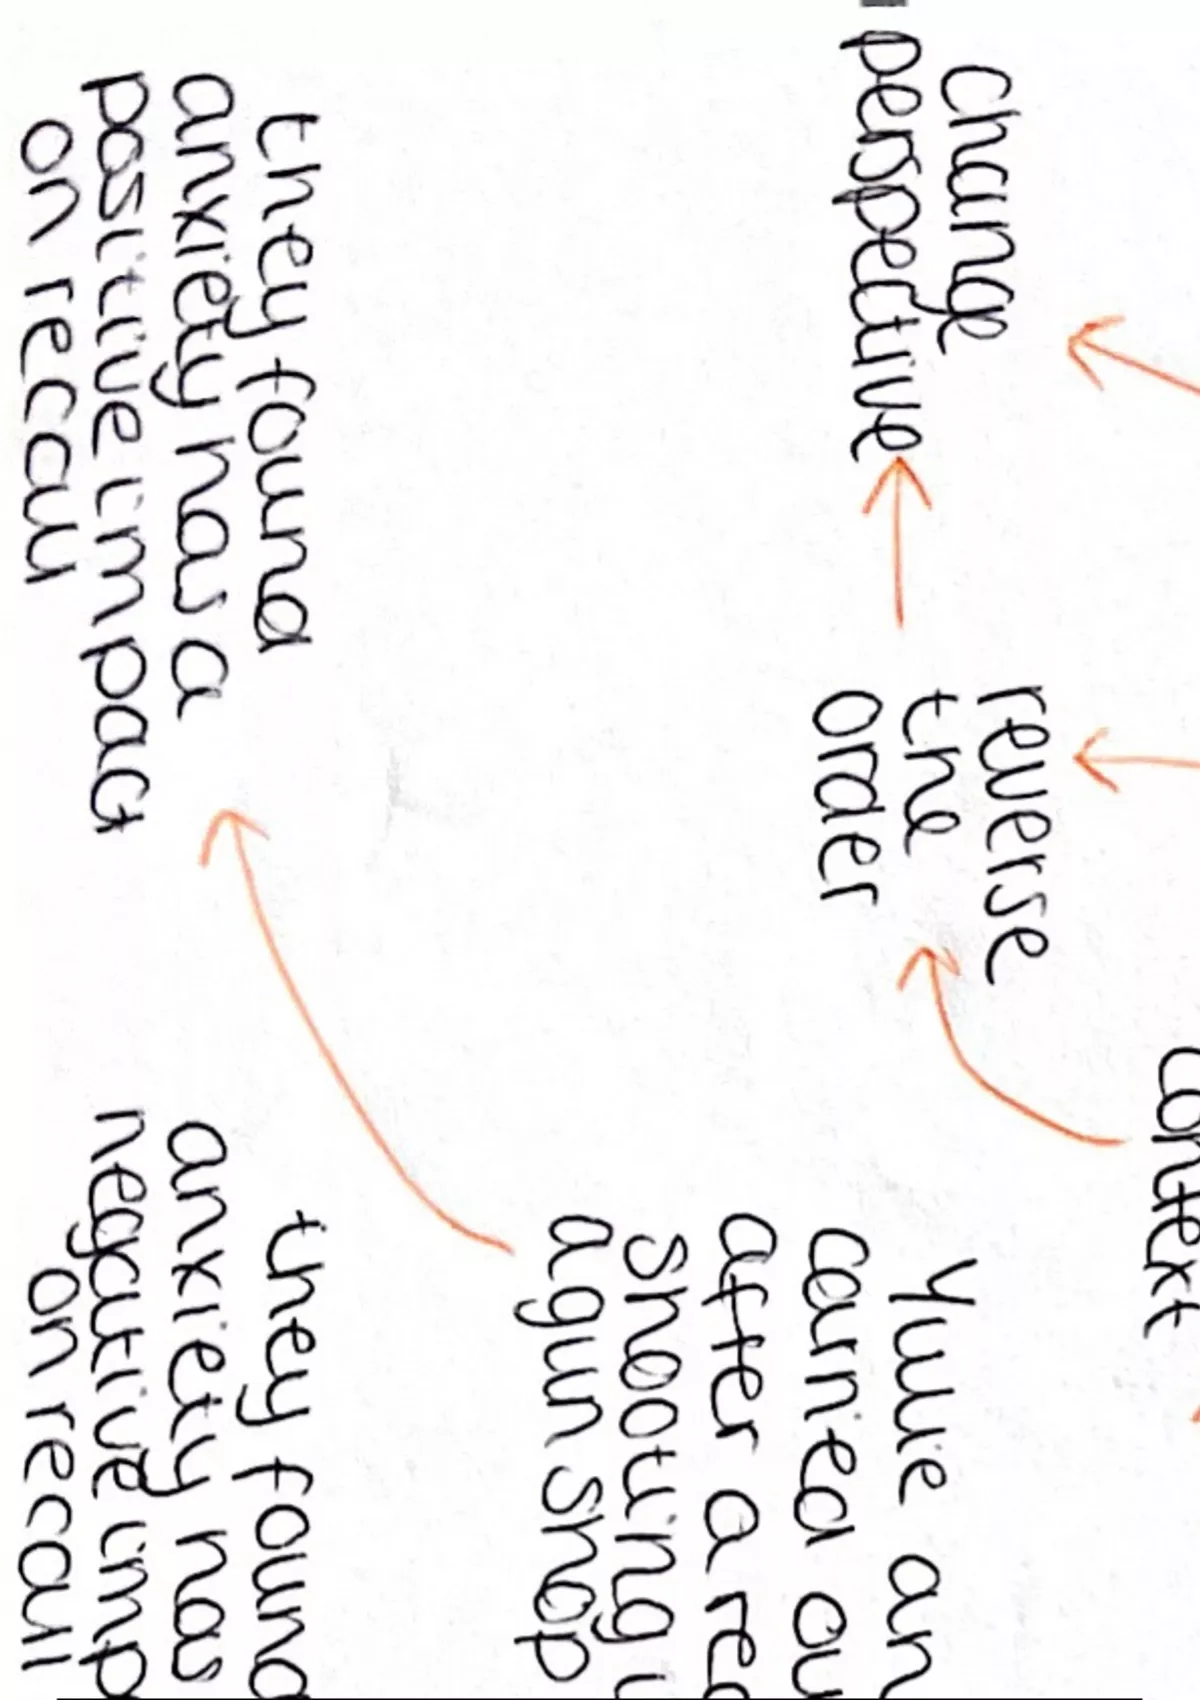 change
perspective
reverse
the
order
context
Yuille an
carried ou
after a rea
shooting i
a gun shop
they found
anxiety has a
positive impact
on recall
they found
anxiety has
negative imp
on recall